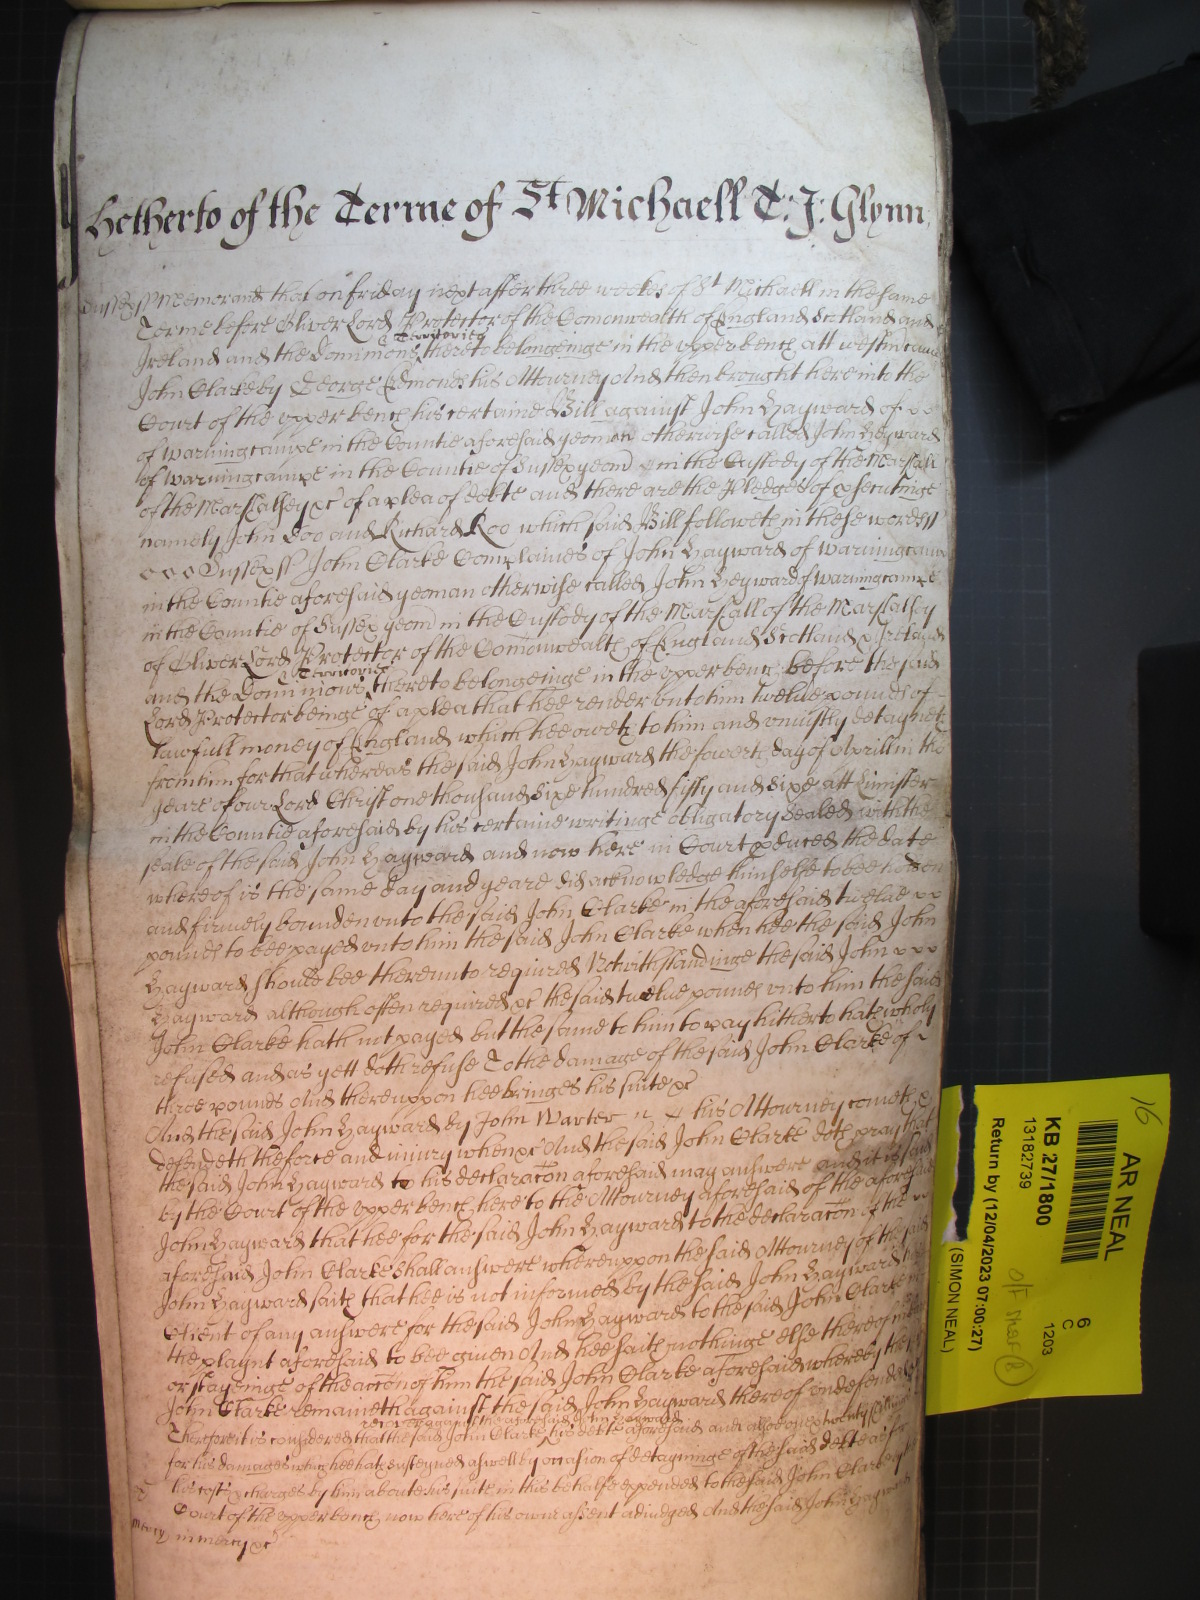 Hetherto of the Terme of St Michaell T: J: Glynn
Sussex ss Memorand that on friday next after three weekes of St Michaell in the same
Terme before Oliver Lord Protector of the Comonwealth of England Scotland and
Territories
Ireland and the Dominions thereto belongeinge in the upper bench att
John Clarke by George Edmonds his Attourney And then brought here into the
Court of the upper bench his certaine Bill against John Hayward of
of Warningcampe in the Countie aforesaid yeoman otherwise called John Heyward
of Warningcampe in the Countie of Sussex yeom in the Custody of the Marshall
of the Marshalsey &c of a plea of debte and there are the Pledges of psecutinge
namely John Doo and Richard Roo which said Bill followeth in these words
Sussex ss John Clarke Complaines of John Hayward of Warningcampe
in the Countie aforesaid yeoman otherwise called John Heyward of Warningcampe
in the Countie of Sussex yeom in the Custody of the Marshall of the Marshalsey
of Oliver Lord Protector of the Comonwealth of England Scotland & Ireland
Territories
and the Dominions thereto belongeinge in the upper bench before the said
Lord Protector beinge of a plea that hee render unto him twelve pounds of
lawfull money of England which hee oweth to him and uniustly detayneth
from him for that whereas the said John Hayward the fowerth day of Aprill in the
yeare of our Lord Christ one thousand sixe hundred fifty and sixe att Liminster
in the Countie aforesaid by his certaine writinge obligatory Sealed with the
seale of the said John Hayward and now here in Court pduced the date
whereof is the same day and yeare did acknowledge himselfe to bee holden
and firmely bounden unto the said John Clarke in the aforesaid twelve
pounds to bee payed unto him the said John Clarke when hee the said John
Hayward should bee thereunto required Notwithstandinge the said John
Hayward although often required &c the said twelve pounds unto him the said
John Clarke hath not payed but the same to him to pay hitherto hath wholy
refused and as yett doth refuse To the damage of the said John Clarke of
three pounds And thereuppon hee bringes his suite &c
And the said John Hayward by John Warter his Attourney cometh &
defendeth the force and iniury when &c And the said John Clarke doth pray that
the said John Hayward to his declaracon aforesaid may answere and it is said
by the Court of the upper bench here to the Attourney aforesaid of the aforesaid
John Hayward that hee for the said John Hayward to the declaracon of the
aforesaid John Clarke shall answere whereuppon the said Attourney of the said
John Hayward saith that hee is not informed by the said John Hayward his
Client of any answere for the said John Hayward to the said John Clarke
the playnt aforesaid to bee given And hee saith nothinge else thereof in
or stayeinge of the accon of him the said John Clarke aforesaid whereby the
John Clarke remaineth against the said John Hayward thereof undefended
recover against the aforesaid John Hayward
Therefore it is considered that the said John Clarke his debte aforesaid and alsoe twenty shillings
for his damages which hee hath susteyned aswell by occasion of detayninge of the said debte as for
his costs & charges by him aboute his suite in this behalfe expended to the said John Clarke by the
Court of the upper bench now here of his owne assent adiudged And the said John Hayward
mercy in mercy &c
16
AR NEAL
KB 27/1800
13182739
Return by (12/04/2023 07:00:27)
(SIMON NEAL)
6
C
1203